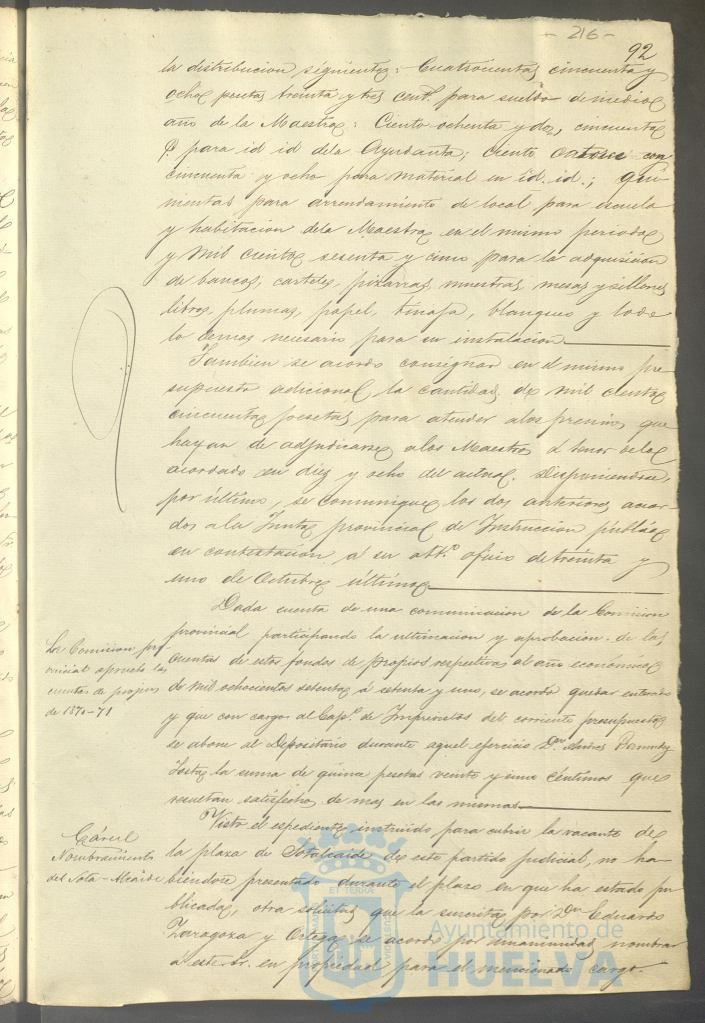 - 216 -
92
la distribucion siguiente: Cuatrocientas cincuenta y
ocho pesetas treinta y tres cent.^s para sueldo de medio
año de la Maestra: Ciento ochenta y dos, cincuenta
p.^a para id id dela Ayudanta; ciento catorce con
cincuenta y ocho para material en id. id.; qui-
nientas para arrendamiento de local para escuela
y habitacion dela Maestra en el mismo periodo
y mil ciento sesenta y cinco para la adquisicion
de bancos, carteles, pizarras, muestras, mesas y sillones
libros, plumas, papel, tinaja, blanqueo y todo
lo demas necesario para su instalacion.
Tambien se acordó consignar en el mismo pre-
supuesto adicional la cantidad de mil ciento
cincuenta pesetas para atender alos premios que
hayan de adjudicarse alos Maestros á tenor delo
acordado en diez y ocho del actual. Disponiendose,
por último, se comuniquen los dos anteriores acuer-
dos ala Junta provincial de Instruccion pública
en contestacion á su att.^o oficio de treinta y
uno de Octubre último
La Comision pro-
vincial aprueba las
cuentas de propios
de 1870-71
Dada cuenta de una comunicacion de la Comision
provincial participando la ultimacion y aprobacion de las
cuentas de estos fondos de Propios respectivas al año económico
de mil ochocientos setenta á setenta y uno, se acordó quedar enterado
y que con cargo al Cap.^o de Imprevistos del corriente presupuesto
se abone al Depositario durante aquel ejercicio D.^n Andres
la suma de quince pesetas veinte y cinco céntimos que
resultan satisfechas de mas en las mismas
Cárcel
Nombramiento
del Sota-Alcaide
Visto el espediente instruido para cubrir la vacante de
la plaza de Sotalcaide de este partido judicial, no ha-
biendose presentado durante el plazo en que ha estado pu-
blicada, otra solicitud que la suscrita por D.^n Eduardo
Zaragoza y Ortega se acordó por unanimidad nombrar
a este Sr. en propiedad para el mencionado cargo.
Ayuntamiento de
HUELVA